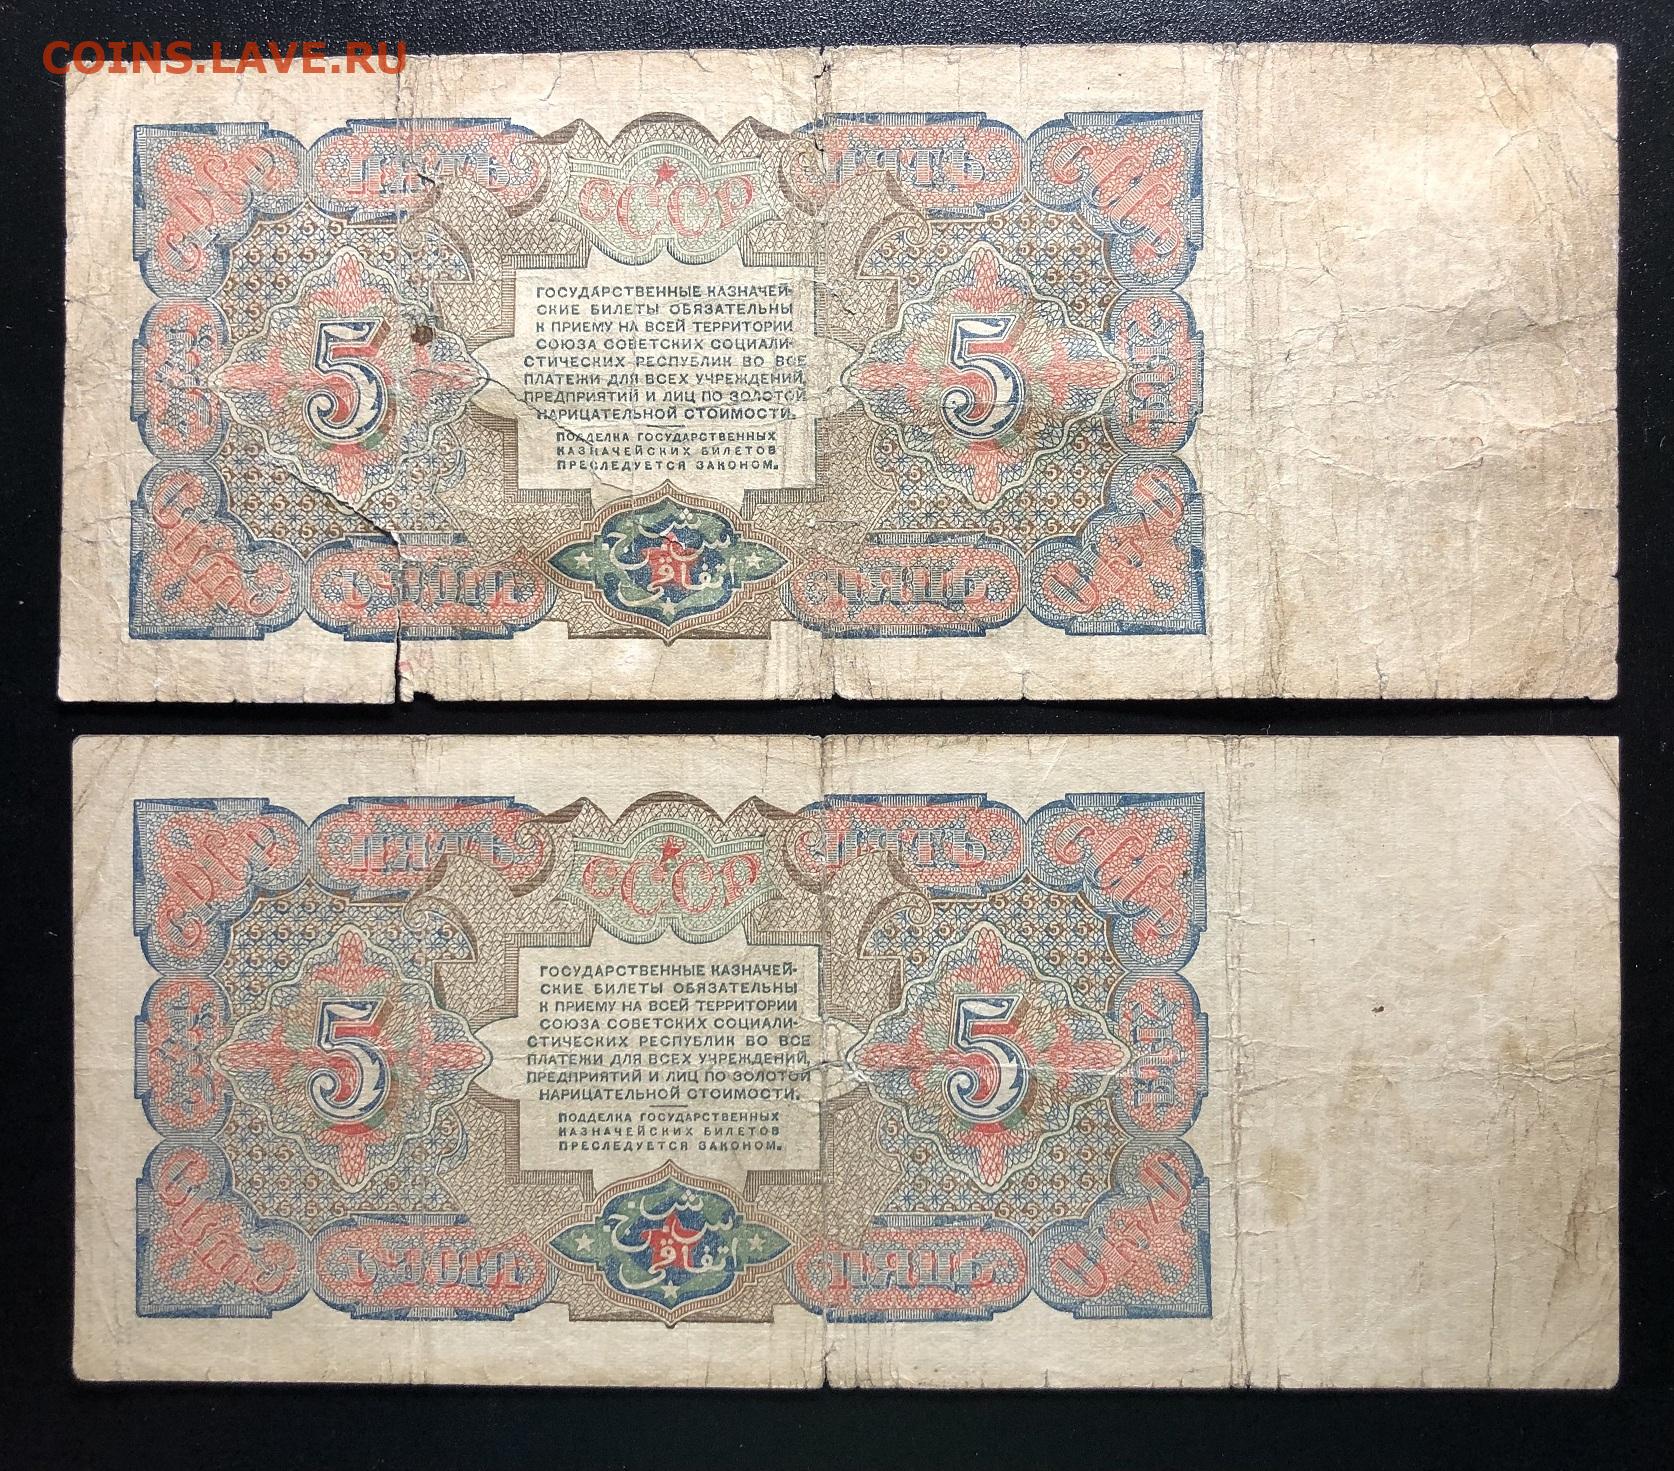 COINS.LAVE.RU
СССР
ГОСУДАРСТВЕННЫЕ КАЗНАЧЕЙ-
СКИЕ БИЛЕТЫ ОБЯЗАТЕЛЬНЫ
К ПРИЕМУ НА ВСЕЙ ТЕРРИТОРИИ
СОЮЗА СОВЕТСКИХ СОЦИАЛИ-
СТИЧЕСКИХ РЕСПУБЛИК ВО ВСЕ
ПЛАТЕЖИ ДЛЯ ВСЕХ УЧРЕЖДЕНИЙ,
ПРЕДПРИЯТИЙ И ЛИЦ ПО ЗОЛОТОЙ
НАРИЦАТЕЛЬНОЙ СТОИМОСТИ.
5 5
ПОДДЕЛКА ГОСУДАРСТВЕННЫХ
КАЗНАЧЕЙСКИХ БИЛЕТОВ
ПРЕСЛЕДУЕТСЯ ЗАКОНОМ.
СССР
ГОСУДАРСТВЕННЫЕ КАЗНАЧЕЙ-
СКИЕ БИЛЕТЫ ОБЯЗАТЕЛЬНЫ
К ПРИЕМУ НА ВСЕЙ ТЕРРИТОРИИ
СОЮЗА СОВЕТСКИХ СОЦИАЛИ-
СТИЧЕСКИХ РЕСПУБЛИК ВО ВСЕ
ПЛАТЕЖИ ДЛЯ ВСЕХ УЧРЕЖДЕНИЙ,
ПРЕДПРИЯТИЙ И ЛИЦ ПО ЗОЛОТОЙ
НАРИЦАТЕЛЬНОЙ СТОИМОСТИ.
5 5
ПОДДЕЛКА ГОСУДАРСТВЕННЫХ
КАЗНАЧЕЙСКИХ БИЛЕТОВ
ПРЕСЛЕДУЕТСЯ ЗАКОНОМ.